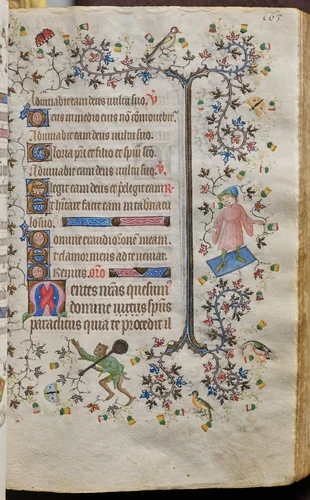 163
Adiuvabit eam deus vultu suo. V
Deus in medio eius non comovebit
Adiuvabit eam deus vultu suo.
Gloria pri et filio et spiui sco.
Adiuvabit eam deus vultu suo. V
Elegit eam deus et pelegit eam R
Et hitare facit eam in tabnacu
lo suo.
Domine exaudi oronem meam.
Et clamor meus ad te veniat.
Oremus. oro
Mentes nras quesum
domine lumis spus
paraclitus qui a te procedit il